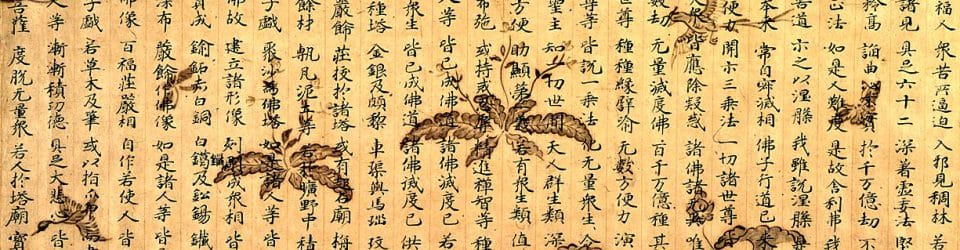 福人 衆苦所逼迫 入邪見稠林
諸見 具足六十二 深著虛妄法
矜高 諂曲心不實 於千万億劫 不
正法 如是人難度 是故舍利弗 我
苦道 示之以涅槃 我雖說涅槃 是
本來 常自寂滅相 佛子行道已 來
便力 開示三乘法 一切諸世尊
皆應除疑惑 諸佛語無異
數劫 无量滅度佛 百千万億種 其
世尊 種種緣譬喻 无數方便力 演
尊等 皆說一乘法 化无量衆生 令
聖主 知一切世間 天人群生類 深
方便 助顯第一義 若有衆生類 值
布施 或持戒忍辱 精進禪智等 種
人等 皆已成佛道 諸佛滅度已 若
衆生 皆已成佛道 諸佛滅度已 供
種塔 金銀及頗黎 車𤦲與馬瑙
嚴飾 莊挍於諸塔 或有起石廟 栴
餘材 甎瓦泥土等 若於曠野中 積
子戲 聚沙爲佛塔 如是諸人等 皆
佛故 建立諸形像 刻雕成衆相 皆
寶成 鍮鉐赤白銅 白鑞及鉛錫 鐵
漆布 嚴飾作佛像 如是諸人等 皆
佛像 百福莊嚴相 自作若使人 皆
子戲 若草木及筆 或以指爪甲
人等 漸漸積功德 具足大悲心 皆
菩薩 度脫无量衆 若人於塔廟 寶